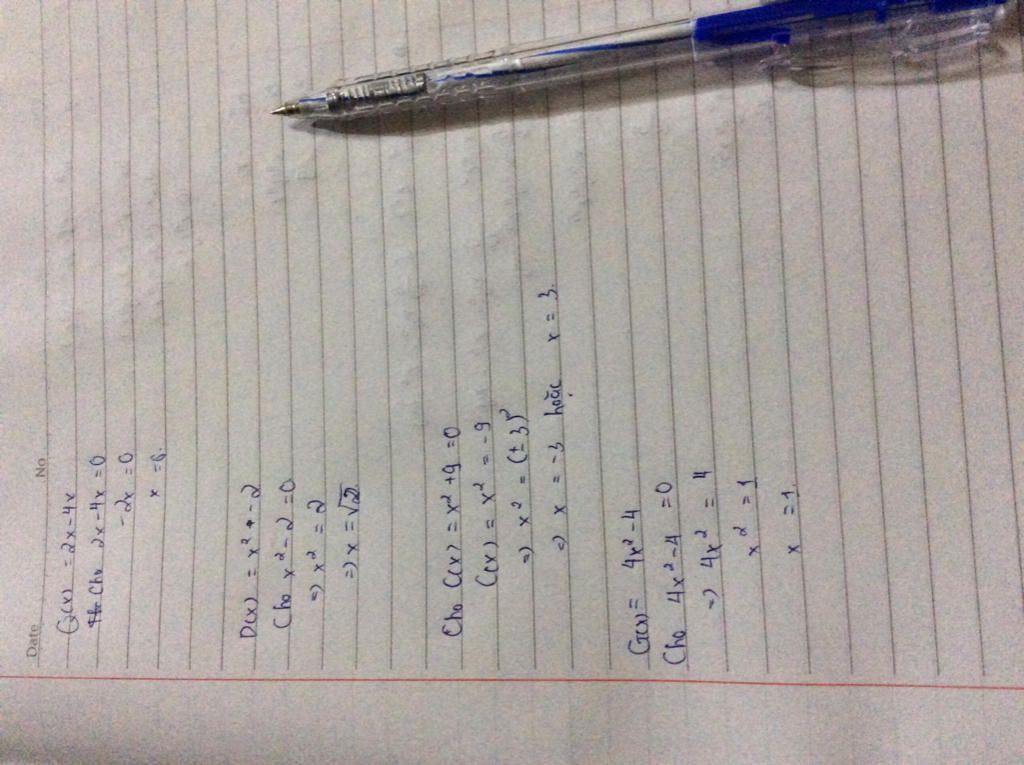 Date No
G(x) = 2x - 4x
Cho 2x - 4x = 0
-2x = 0
x = 0.
D(x) = x² - 2
Cho x² - 2 = 0
=> x² = 2
=> x = √2.
Cho C(x) = x² + 9 = 0
C(x) = x² = -9
=> x² = (± 3)²
=> x = -3 hoặc x = 3.
G(x) = 4x² - 4
Cho 4x² - 4 = 0
=> 4x² = 4
x² = 1
x = 1.